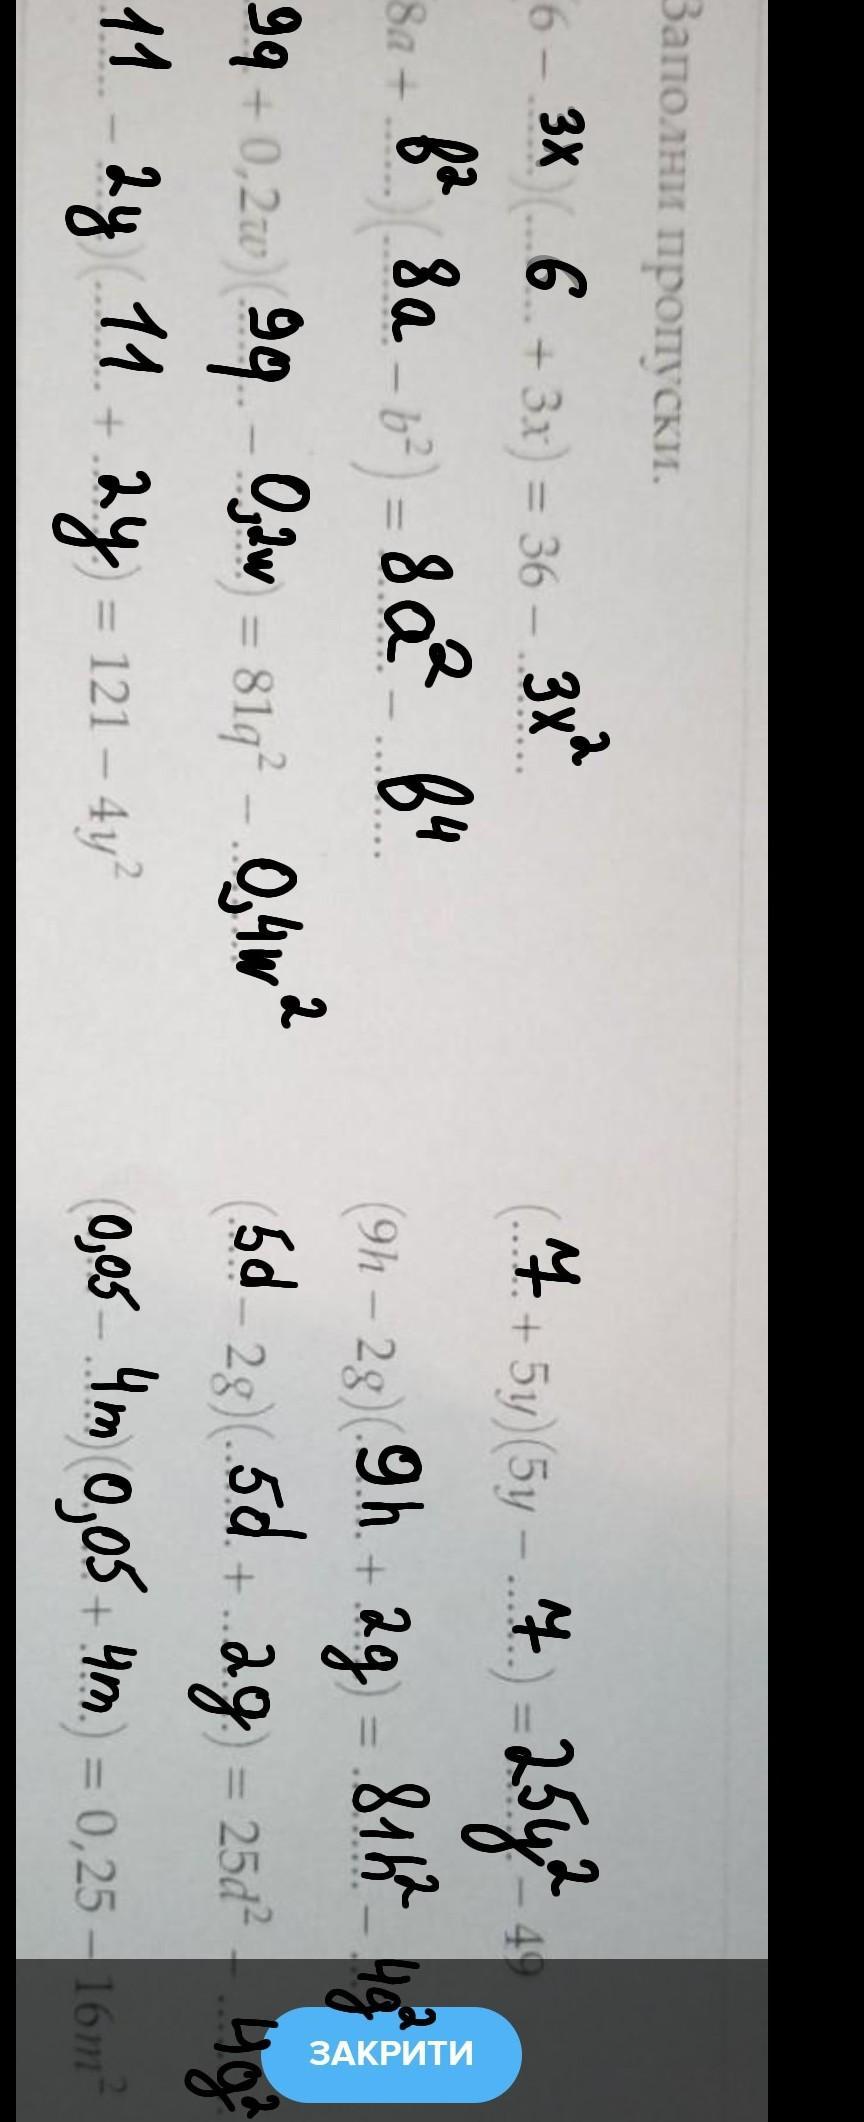 Заполни пропуски.
6 – 3x)(6 + 3x) = 36 – 3x²
8a + b²)(8a – b²) = 8a² – b⁴
9q + 0,2w)(9q – 0,2w) = 81q² – 0,4w²
11 – 2y)(11 + 2y) = 121 – 4y²
(7 + 5y)(5y – 7) = 25y² – 49
(9h – 2g)(9h + 2g) = 81h² – 4g²
(5d – 2g)(5d + 2g) = 25d² – 4g²
(0,05 – 4m)(0,05 + 4m) = 0,25 – 16m²
ЗАКРИТИ